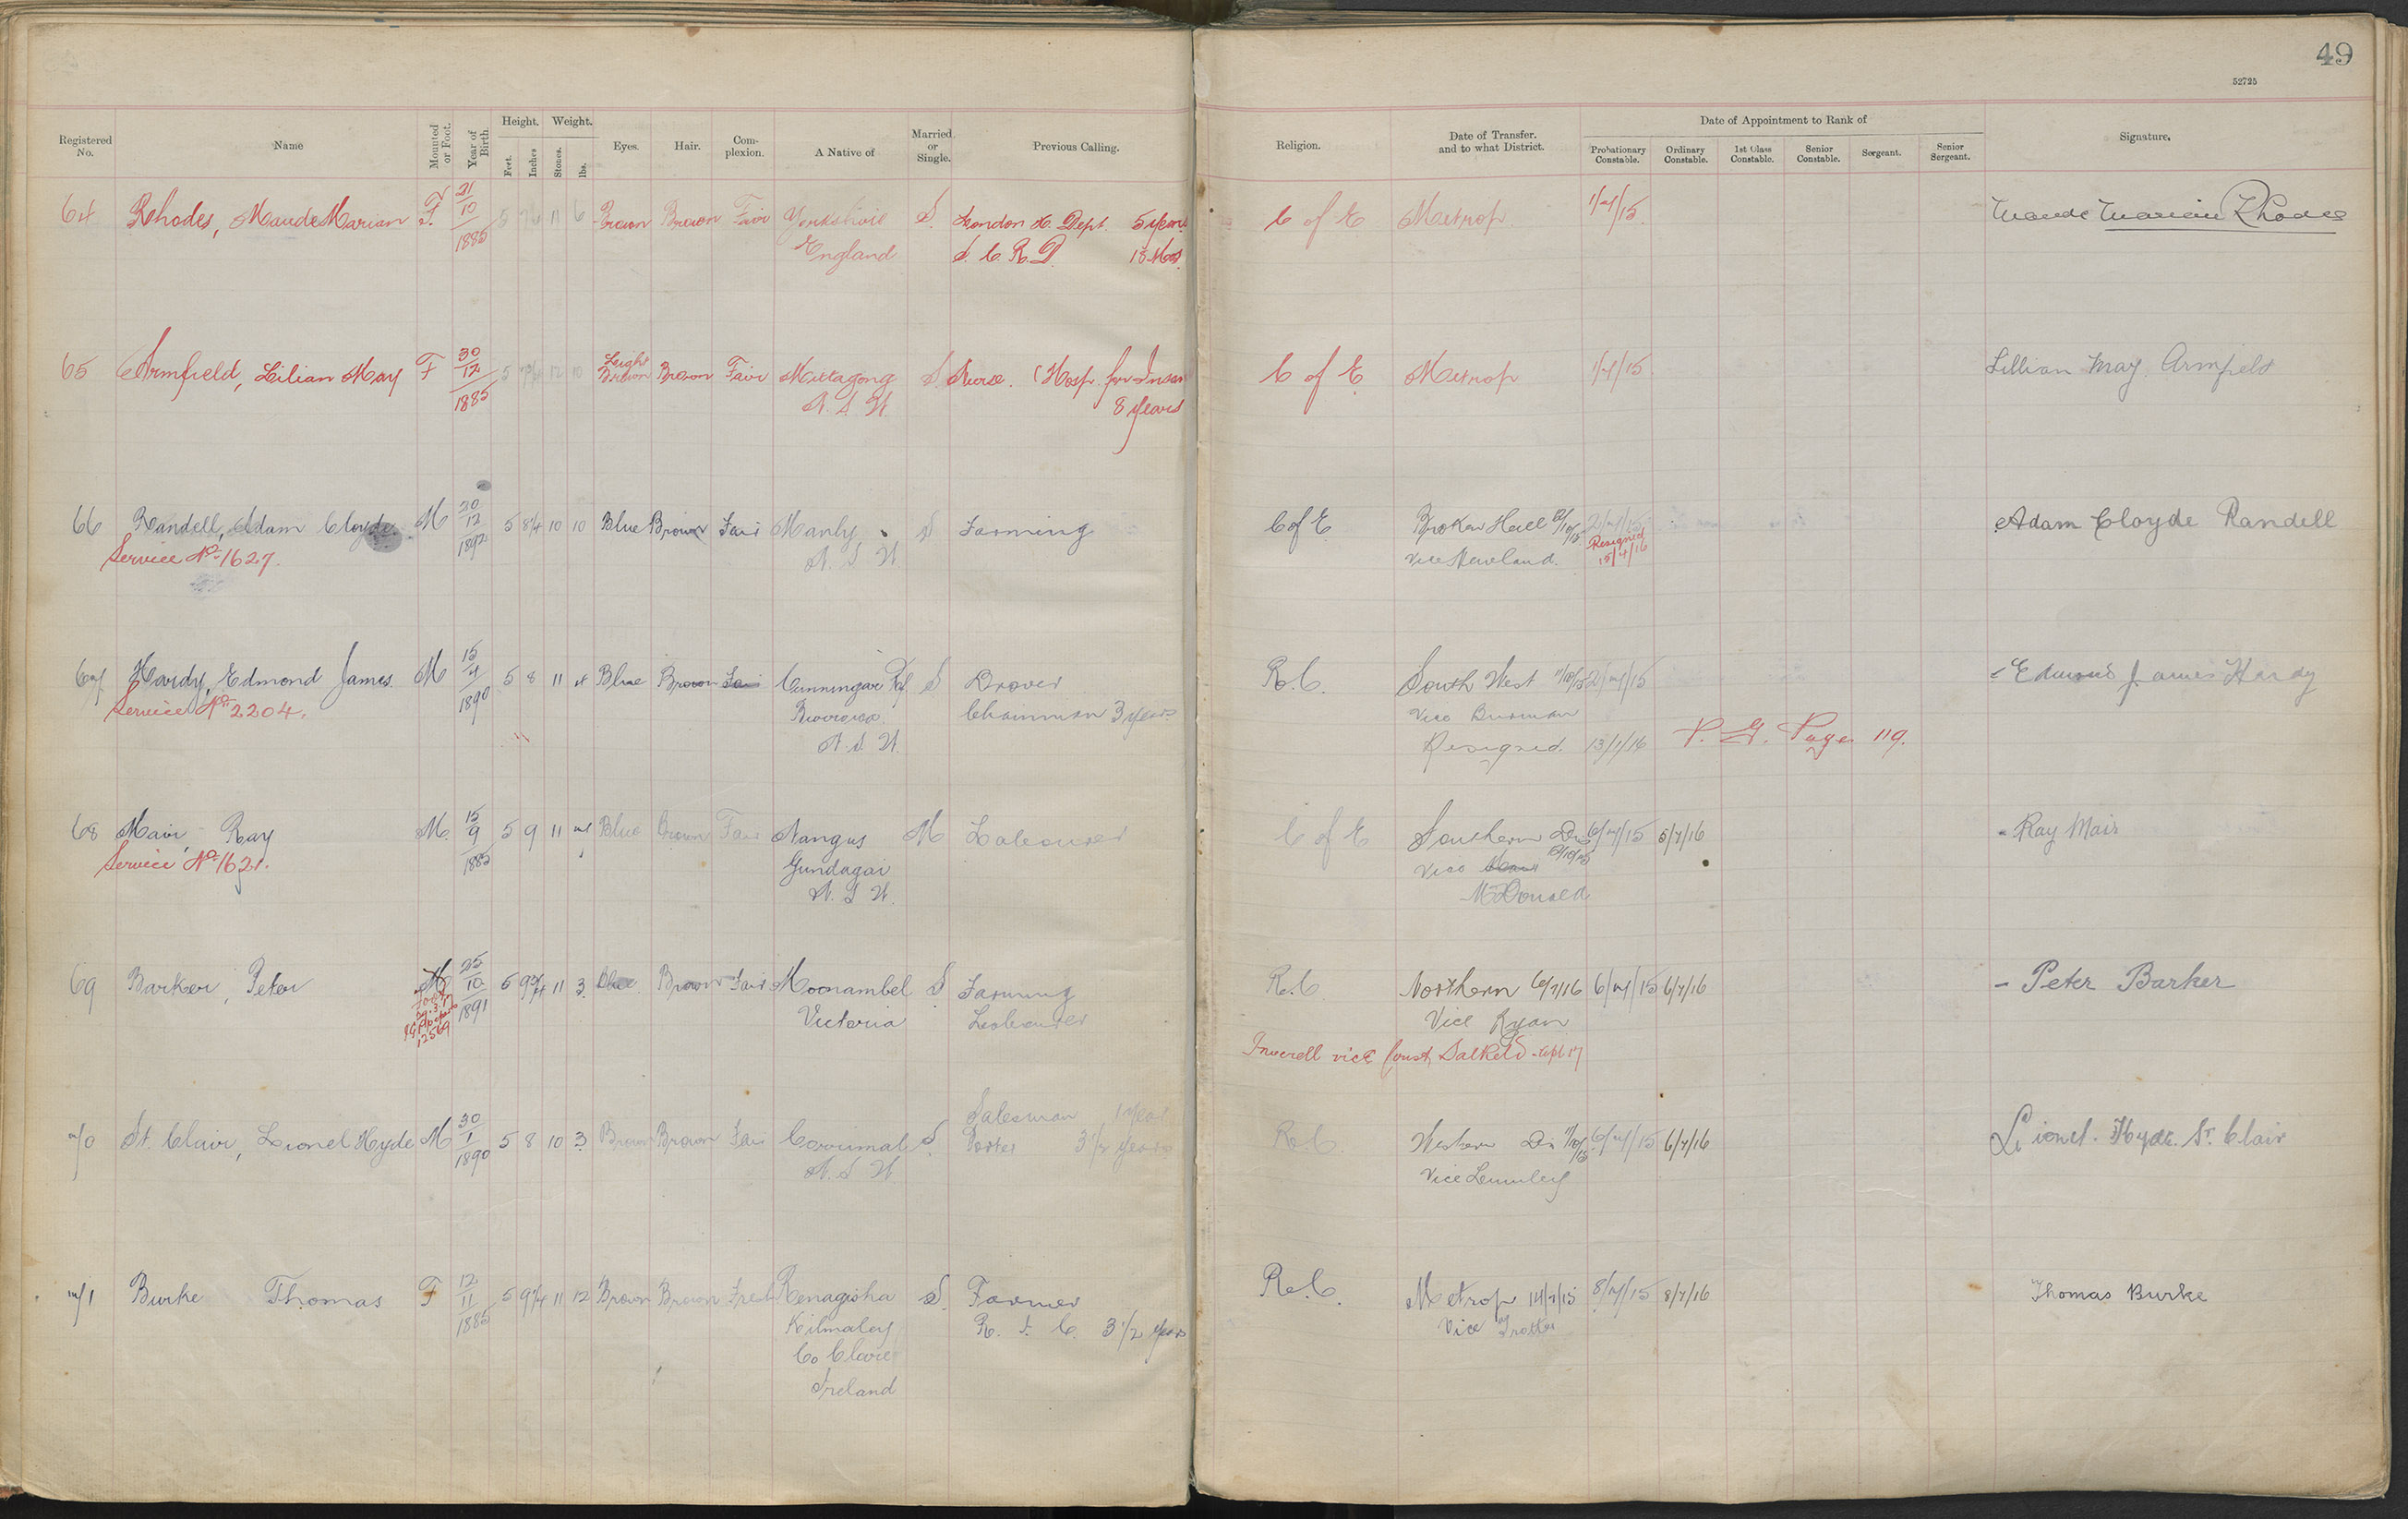 49
52725
Registered No.
Name
Mounted or Foot.
Year of Birth.
Height.
Feet.
Inches
Weight.
Stones.
lbs.
Eyes.
Hair.
Com-plexion.
A Native of
Married or Single.
Previous Calling.
Religion.
Date of Transfer. and to what District.
Date of Appointment to Rank of
Probationary Constable.
Ordinary Constable.
1st Class Constable.
Senior Constable.
Sergeant.
Senior Sergeant.
Signature.
64 Rhodes, Maude Marian F. 21/10/1885 5 11 6 Brown Brown Fair Yorkshire S. London H. Dept. 5 years C of E Metrop 1/7/15 Maude Marian Rhodes
England S. C. R. D. 13 Mos.
65 Armfield, Lilian May F 30/12/1885 5 12 10 Light Brown Brown Fair Mittagong S. Nurse. (Hosp. for Insan C of E Metrop 1/7/15 Lillian May Armfield
N. S. W. 8 years
66 Randell, Adam Cloyde M 20/12/1892 5 8¼ 10 10 Blue Brown Fair Manly S Farming C of E Broken Hill 12/10/15 2/7/15 Adam Cloyde Randell
Service No. 1627. N. S. W. Vice Newland. Resigned 15/4/16
67 Hardy, Edmond James. M 15/4/1890 5 8 11 4 Blue Brown Fair Cunningar S Drover R. C. South West 11/10/15 2/7/15 Edmond James Hardy
Service No. 2204. N. S. W. Chainman 3 years Vice Burman
Resigned. 13/1/16 P. G. Page 119.
68 Mair, Ray M. 15/9/1885 5 9 11 7 Blue Brown Fair Nangus M Labourer C of E Southern Dis 12/10/15 6/7/15 5/7/16 Ray Mair
Service No. 1621. Gundagai Vice
N. S. W. McDonald
69 Barker, Peter M 25/10/1891 5 9¾ 11 3 Blue Brown Fair Moonambel S Farming R. C. Northern 6/7/16 6/7/15 6/7/16 Peter Barker
Foot 12569 Victoria Labourer Vice Ryan
Inverell vice Const. Salkeld
70 St. Clair, Lionel Hyde M 30/1/1890 5 8 10 3 Brown Brown Fair Corrimal S. Salesman 1 year R. C. Western Dis 11/10/15 6/7/15 6/7/16 Lionel Hyde St. Clair
N. S. W. Porter 3½ years Vice Lumley
71 Burke Thomas F 12/11/1885 5 9¼ 11 12 Brown Brown Fresh Renagisha S. Farmer R. C. Metrop 14/7/15 8/7/15 8/7/16 Thomas Burke
Kilmaley R. I. C. 3 1/2 years Vice Trotter
Co Clare
Ireland